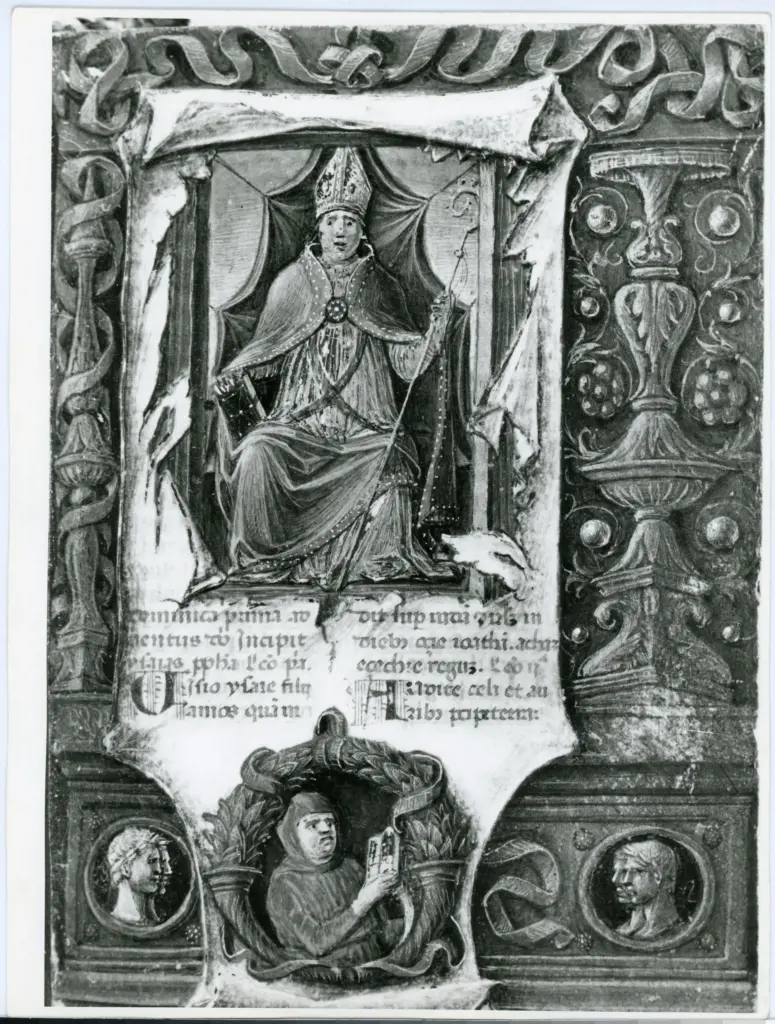 dominica prima ad
uentus dñ Incipit
ysaias ppha lco pa.
Visio ysaie filij
amos quam ui
dit sup iuda in
diebȝ ozie ioathã. achaz
ezechie regũ. lco ij
Audite celi et au
ribȝ pcipe terra: